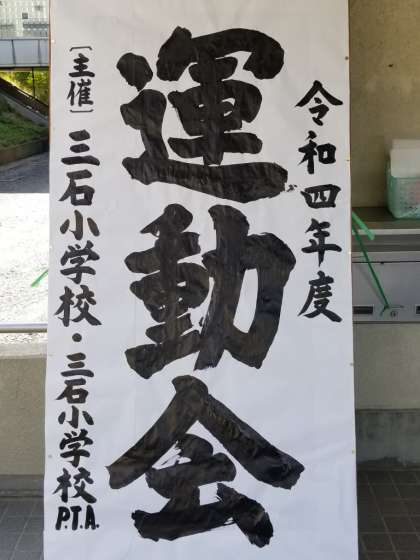 令和四年度
運動会
［主催］三石小学校・三石小学校P.T.A.